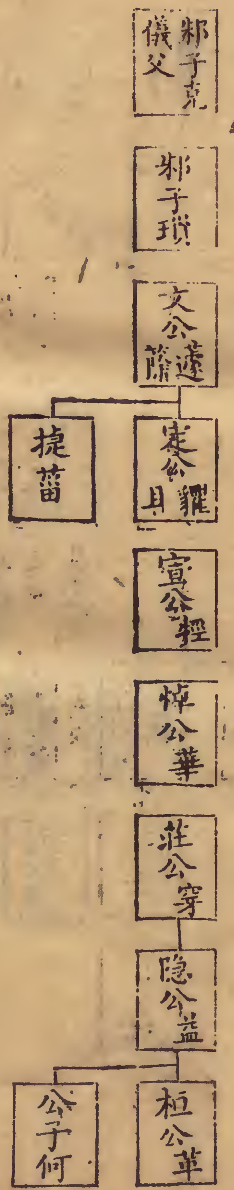 邾子克
儀父
邾子瑣
文公蘧
蒢
定公貜
且
捷菑
宣公牼
悼公華
莊公穿
隐公益
桓公革
公子何